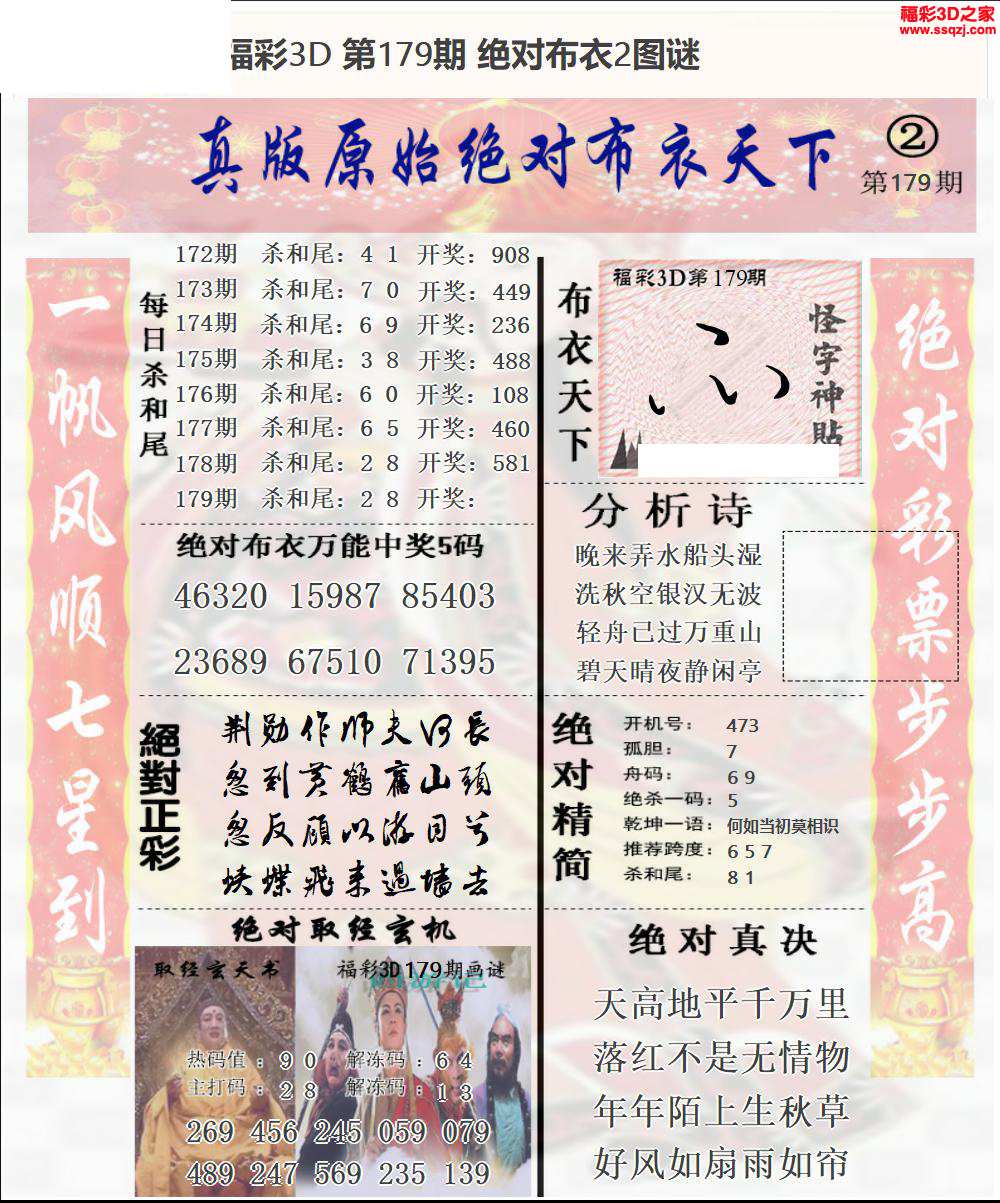 福彩3D之家
www.ssqzj.com
福彩3D 第179期 绝对布衣2图谜
真版原始绝对布衣天下
②
第179期
一帆风顺七星到
每日杀和尾
172期 杀和尾：4 1 开奖：908
173期 杀和尾：7 0 开奖：449
174期 杀和尾：6 9 开奖：236
175期 杀和尾：3 8 开奖：488
176期 杀和尾：6 0 开奖：108
177期 杀和尾：6 5 开奖：460
178期 杀和尾：2 8 开奖：581
179期 杀和尾：2 8 开奖：
绝对布衣万能中奖5码
46320 15987 85403
23689 67510 71395
絕對正彩
荆勋作师夫何长
忽到黄鹤旧山头
忽反顾以游目兮
蛱蝶飛来過墙去
绝对取经玄机
取经玄天书
福彩3D179期画谜
热码值：9 0 解冻码：6 4
主打码：2 8 解冻码：1 3
269 456 245 059 079
489 247 569 235 139
布衣天下
福彩3D第179期
怪字神貼
分析诗
晚来弄水船头湿
洗秋空银汉无波
轻舟已过万重山
碧天晴夜静闲亭
绝对精简
开机号：473
孤胆：7
舟码：6 9
绝杀一码：5
乾坤一语：何如当初莫相识
推荐跨度：6 5 7
杀和尾：8 1
绝对真决
天高地平千万里
落红不是无情物
年年陌上生秋草
好风如扇雨如帘
绝对彩票步步高